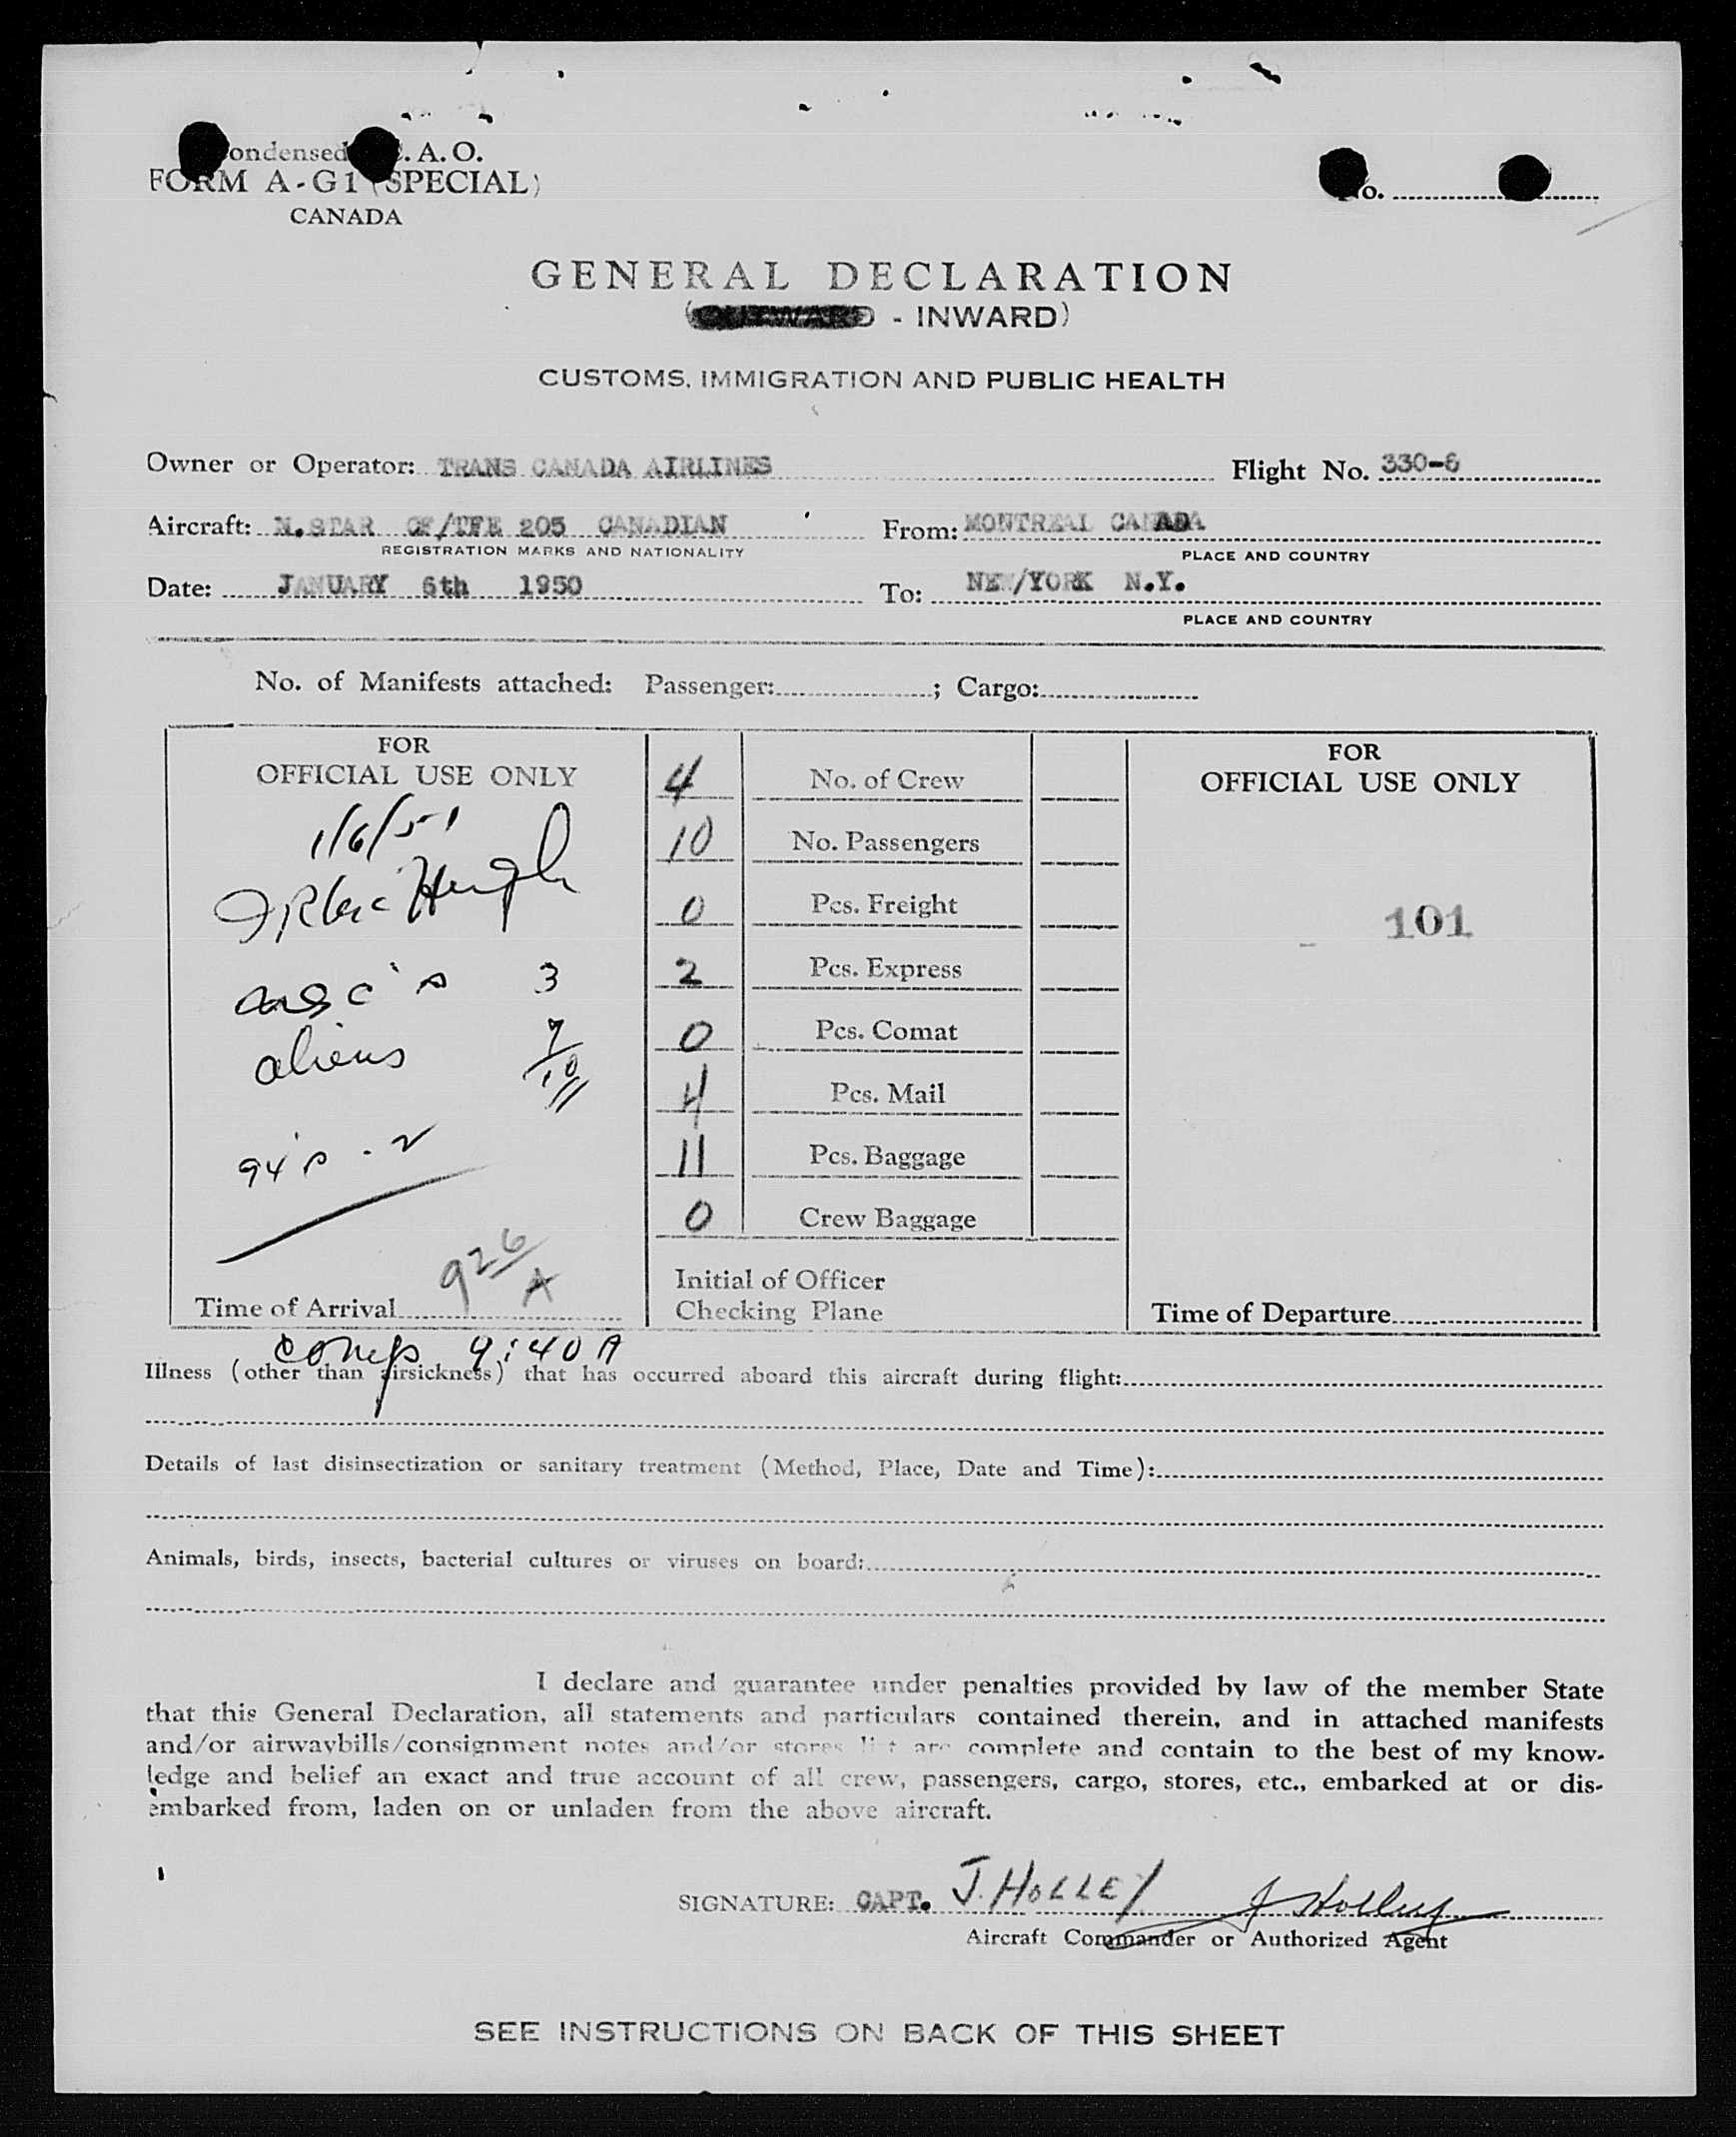 ondensed .A.O.
FORM A-G1 (SPECIAL)
CANADA
No.
GENERAL DECLARATION
( - INWARD)
CUSTOMS, IMMIGRATION AND PUBLIC HEALTH
Owner or Operator: TRANS CANADA AIRLINES Flight No. 330-6
Aircraft: N.STAR CF/TFE 205 CANADIAN From: MONTREAL CANADA
REGISTRATION MARKS AND NATIONALITY PLACE AND COUNTRY
Date: JANUARY 6th 1950 To: NEW/YORK N.Y.
PLACE AND COUNTRY
No. of Manifests attached: Passenger: ; Cargo:
FOR
OFFICIAL USE ONLY
1/6/51
3
aliens 7
10
94's - 2
926
A
Time of Arrival
comp 9:40 A
4 No. of Crew
10 No. Passengers
0 Pcs. Freight
2 Pcs. Express
0 Pcs. Comat
4 Pcs. Mail
11 Pcs. Baggage
0 Crew Baggage
Initial of Officer
Checking Plane
FOR
OFFICIAL USE ONLY
101
Time of Departure
Illness (other than airsickness) that has occurred aboard this aircraft during flight:
Details of last disinsectization or sanitary treatment (Method, Place, Date and Time):
Animals, birds, insects, bacterial cultures or viruses on board:
I declare and guarantee under penalties provided by law of the member State
that this General Declaration, all statements and particulars contained therein, and in attached manifests
and/or airwaybills/consignment notes and/or stores list are complete and contain to the best of my know-
ledge and belief an exact and true account of all crew, passengers, cargo, stores, etc., embarked at or dis-
embarked from, laden on or unladen from the above aircraft.
SIGNATURE: CAPT. J. HOLLEY J Holley
Aircraft Commander or Authorized Agent
SEE INSTRUCTIONS ON BACK OF THIS SHEET